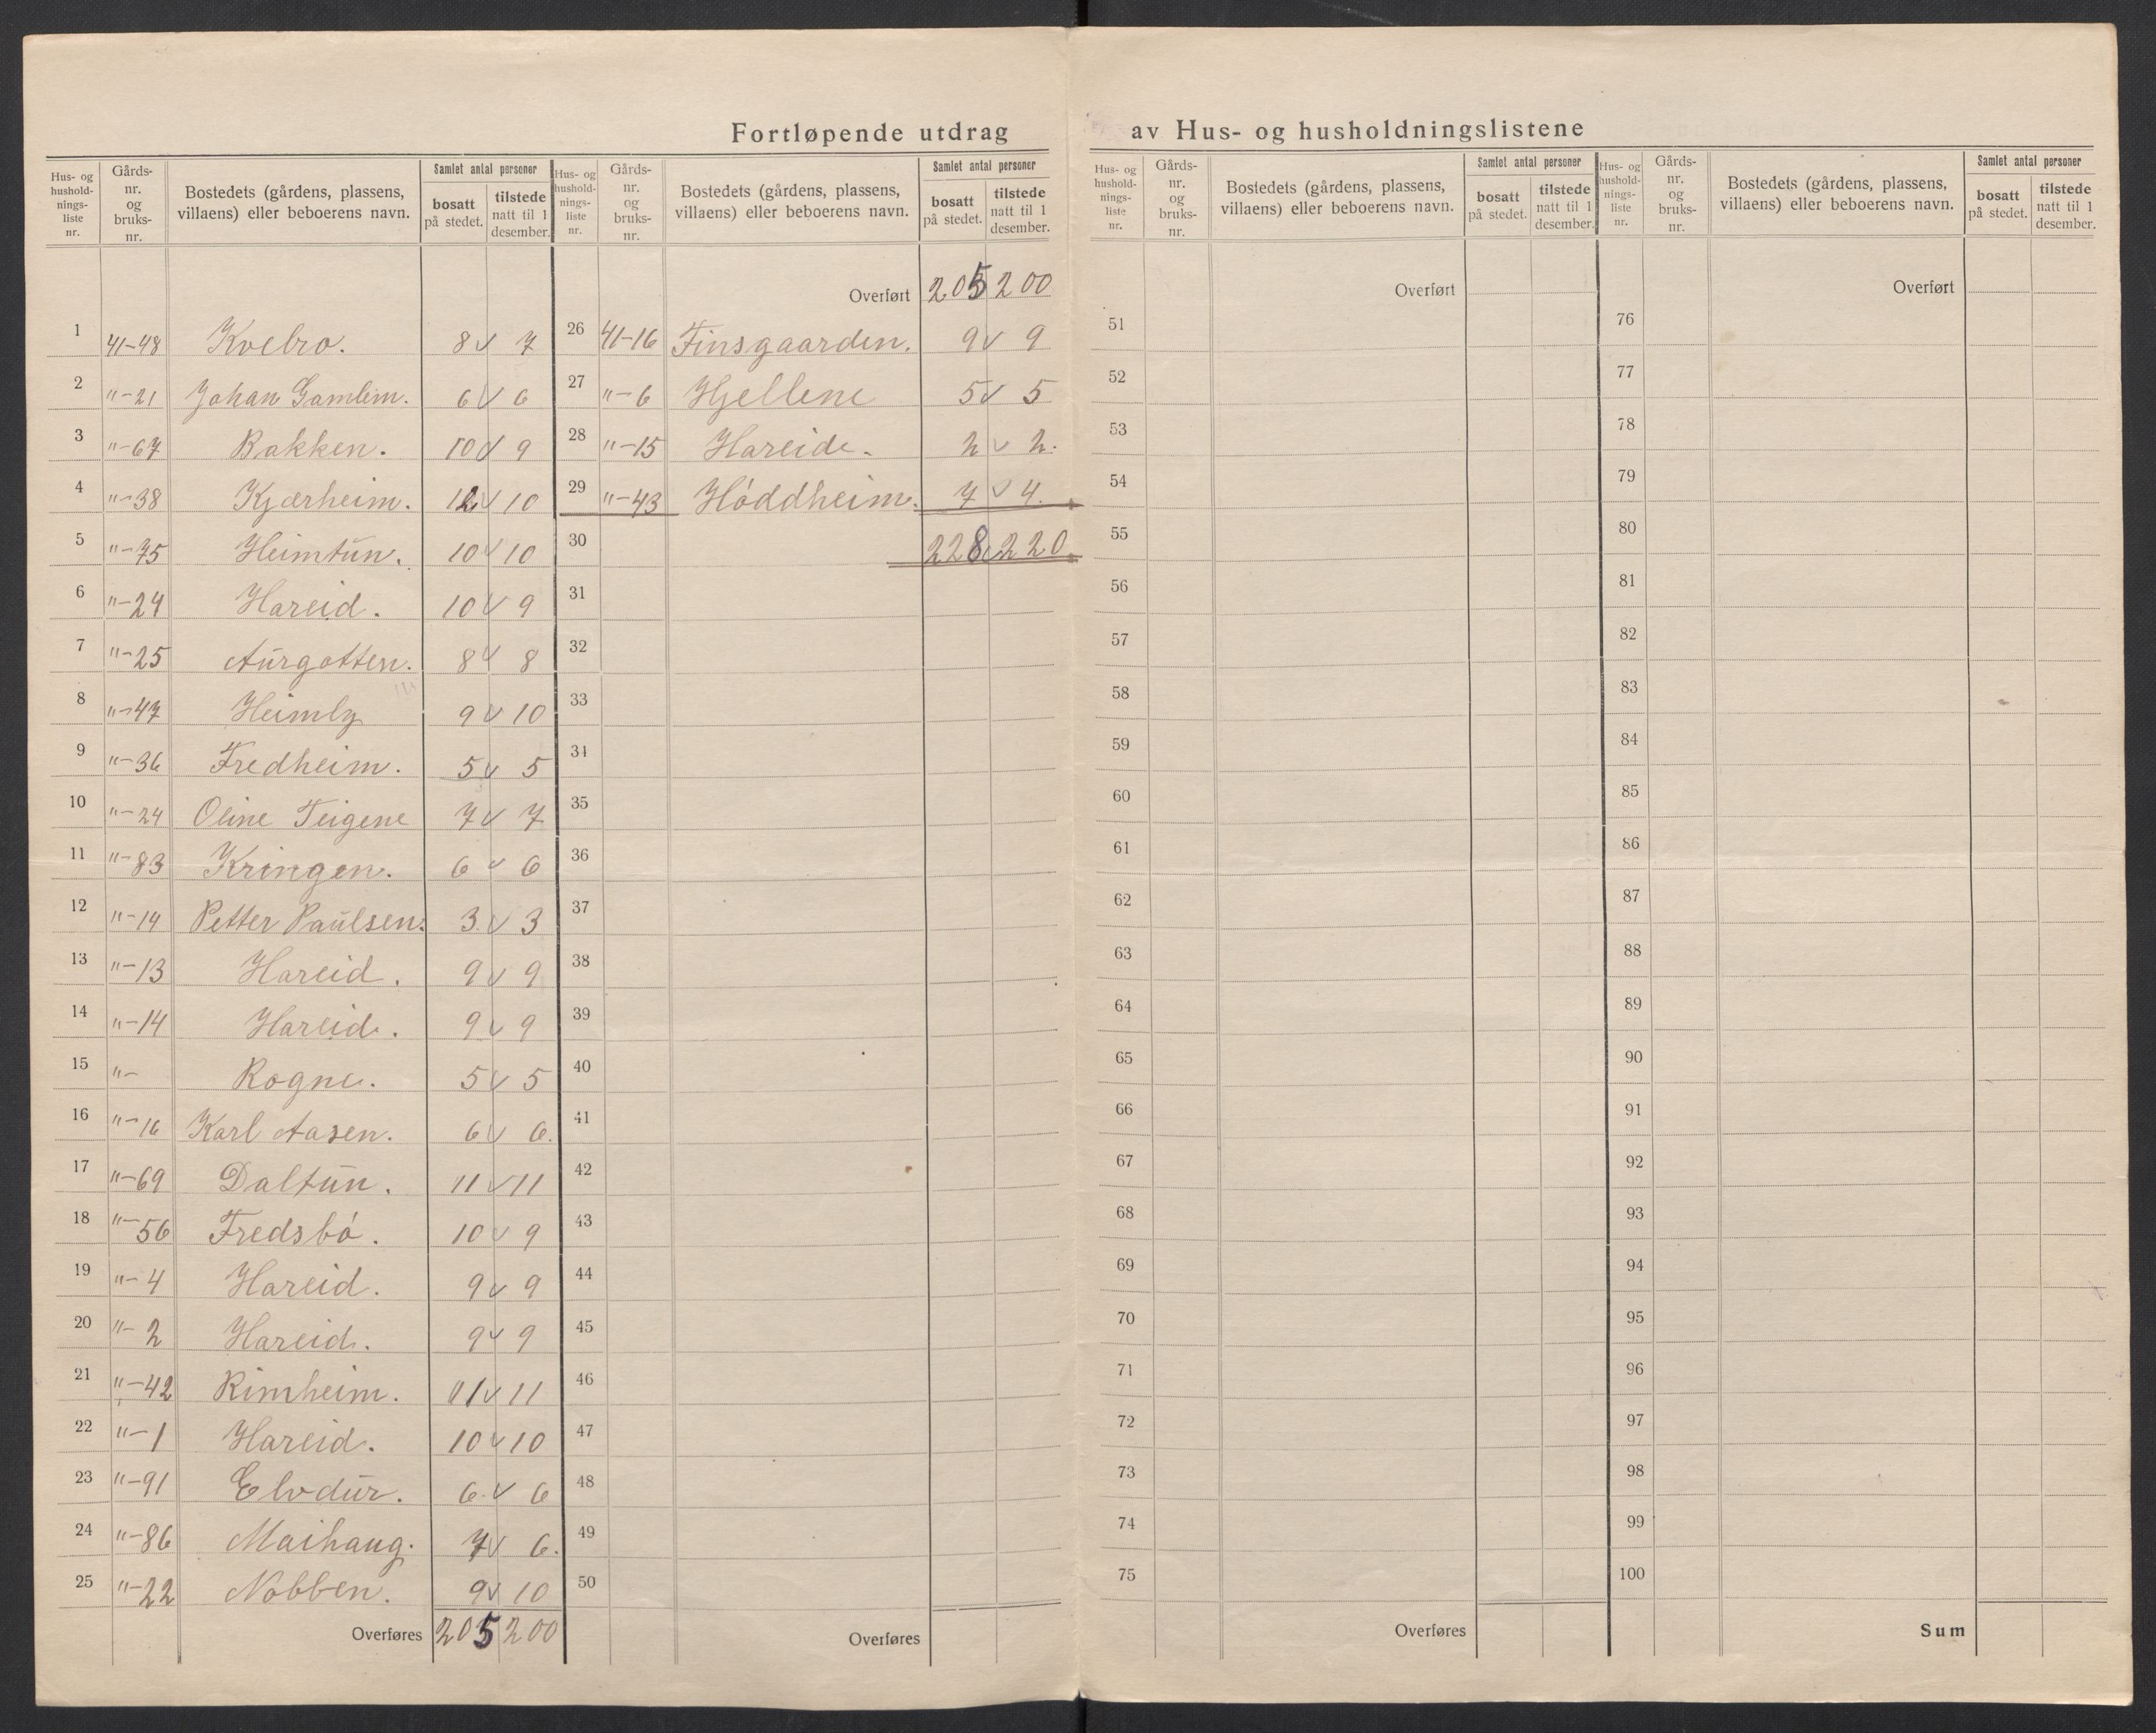 Fortløpende utdrag av Hus- og husholdningslistene
Hus- og hushold- nings- liste nr. | Gårds- nr. og bruks- nr. | Bostedets (gårdens, plassens, villaens) eller beboerens navn. | Samlet antal personer | bosatt på stedet. | tilstede natt til 1 desember.
1 41-48 Kvebro. 8 v 7
2 "-21 Johan Gamlem. 6 v 6
3 "-67 Bakken. 10 v 9
4 "-38 Kjærheim. 12 v 10
5 "-75 Heimtun. 10 v 10
6 "-24 Hareid. 10 v 9
7 "-25 Aurgotten. 8 v 8
8 "-47 Heimly 9 v 10
9 "-36 Fredheim. 5 v 5
10 "-24 Oline Teigene 7 v 7
11 "-83 Kringen. 6 v 6
12 "-14 Petter Paulsen. 3 v 3
13 "-13 Hareid. 9 v 9
14 "-14 Hareid. 9 v 9
15 "- Rogne. 5 v 5
16 "-16 Karl Aasen. 6 v 6.
17 "-69 Daltun. 11 v 11
18 "-56 Fredsbó. 10 v 9
19 "-4 Hareid. 9 v 9
20 "-2 Hareid. 9 v 9
21 "-42 Rimheim. 11 v 11
22 "-1 Hareid. 10 v 10
23 "-91 Elvdur. 6 v 6
24 "-86 Maihaug. 7 v 6.
25 "-22 Nobben. 9 v 10
Overføres 205 200
Hus- og hushold- nings- liste nr. | Gårds- nr. og bruks- nr. | Bostedets (gårdens, plassens, villaens) eller beboerens navn. | Samlet antal personer | bosatt på stedet. | tilstede natt til 1 desember.
Overført 205 200
26 41-16 Finsgaarden. 9 v 9
27 "-6 Hjellene 5 v 5
28 "-15 Hareide. 2 v 2.
29 "-43 Hóddheim. 7 v 4.
30 228 v 220.
31
32
33
34
35
36
37
38
39
40
41
42
43
44
45
46
47
48
49
50
Overføres
Hus- og hushold- nings- liste nr. | Gårds- nr. og bruks- nr. | Bostedets (gårdens, plassens, villaens) eller beboerens navn. | Samlet antal personer | bosatt på stedet. | tilstede natt til 1 desember.
Overført
51
52
53
54
55
56
57
58
59
60
61
62
63
64
65
66
67
68
69
70
71
72
73
74
75
Overføres
Hus- og hushold- nings- liste nr. | Gårds- nr. og bruks- nr. | Bostedets (gårdens, plassens, villaens) eller beboerens navn. | Samlet antal personer | bosatt på stedet. | tilstede natt til 1 desember.
Overført
76
77
78
79
80
81
82
83
84
85
86
87
88
89
90
91
92
93
94
95
96
97
98
99
100
Sum